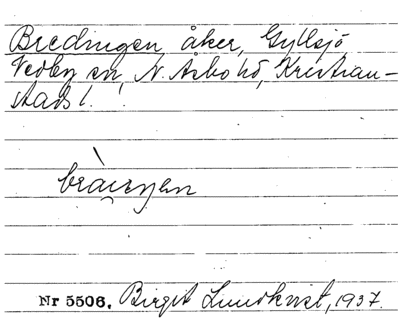 Bredingen åker, Gyllsjö
Vedby sn, N. Åsbo hd, Kristian-
stads l.
Nr 5506. Birgit Lundkvist, 1937.